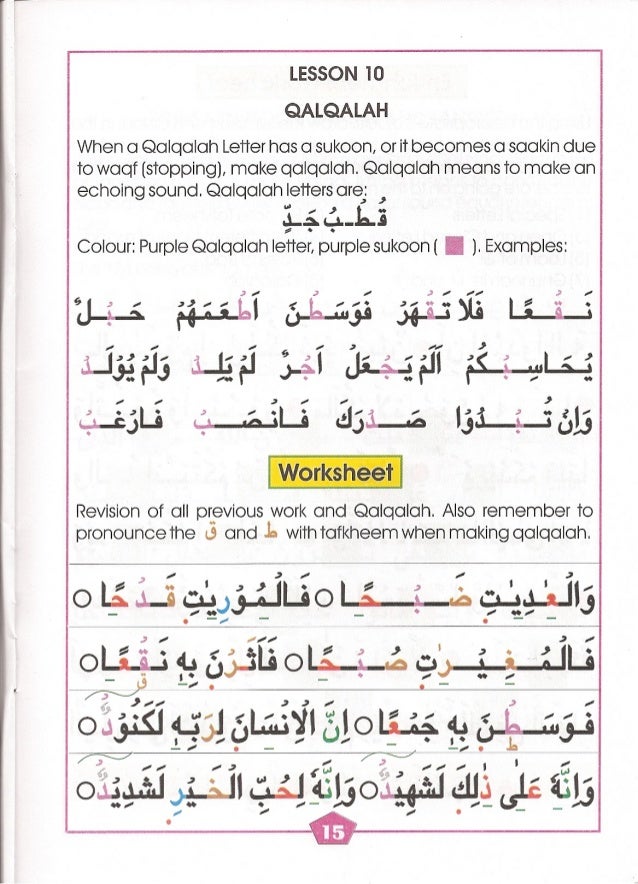 LESSON 10
QALQALAH
When a Qalqalah Letter has a sukoon, or it becomes a saakin due
to waqf (stopping), make qalqalah. Qalqalah means to make an
echoing sound. Qalqalah letters are:
قُطْبُ جَدٍّ
Colour: Purple Qalqalah letter, purple sukoon ( ). Examples:
نَقْعًا فَلَا تَقْهَرْ فَوَسَطْنَ أَطْعَمَهُمْ حَبْلٌ
يُحَاسِبْكُمْ اَلَمْ يَجْعَلْ اَجْرٌ لَمْ يَلِدْ وَلَمْ يُوْلَدْ
وَاِنْ تُبْدُوْا صَدْرَكَ فَانْصَبْ فَارْغَبْ
Worksheet
Revision of all previous work and Qalqalah. Also remember to
pronounce the ق and ط with tafkheem when making qalqalah.
وَالْعٰدِيٰتِ ضَبْحًا ○ فَالْمُوْرِيٰتِ قَدْحًا ○
فَالْمُغِيْرٰتِ صُبْحًا ○ فَاَثَرْنَ بِهٖ نَقْعًا ○
فَوَسَطْنَ بِهٖ جَمْعًا ○ اِنَّ الْاِنْسَانَ لِرَبِّهٖ لَكَنُوْدٌ ○
وَاِنَّهٗ عَلٰى ذٰلِكَ لَشَهِيْدٌ ○ وَاِنَّهٗ لِحُبِّ الْخَيْرِ لَشَدِيْدٌ ○
15